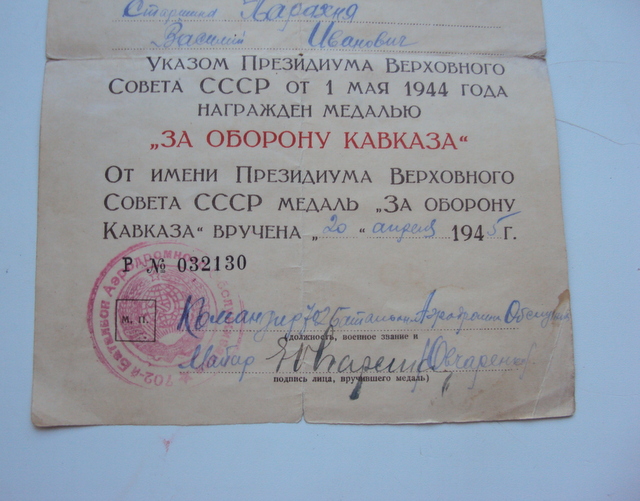 Старшина Парахня
Василий Иванович
Указом Президиума Верховного
Совета СССР от 1 мая 1944 года
награжден медалью
„ЗА ОБОРОНУ КАВКАЗА“
От имени Президиума Верховного
Совета СССР медаль „За оборону
Кавказа“ вручена „20“ апреля 1945 г.
Р № 032130
М. П.
Командир 702 Батальон Аэродромн Обслужив
(должность, военное звание и
Майор Овчаренко
подпись лица, вручившего медаль)
702-й Батальон Аэродромного